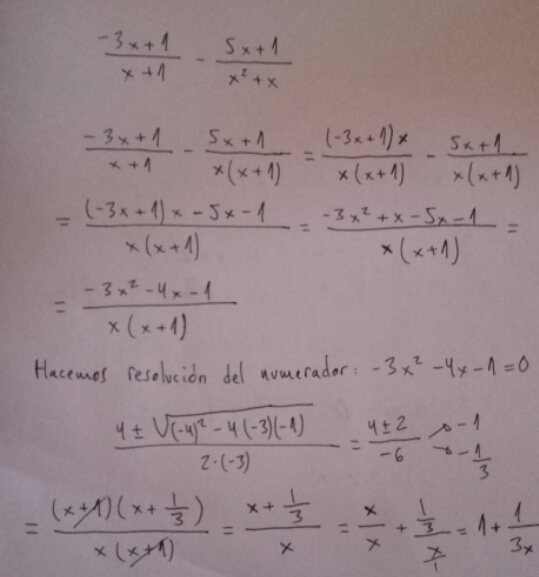 (-3x+1)/(x+1) - (5x+1)/(x²+x)
(-3x+1)/(x+1) - (5x+1)/(x(x+1)) = ((-3x+1)x)/(x(x+1)) - (5x+1)/(x(x+1))
= ((-3x+1)x-5x-1)/(x(x+1)) = (-3x²+x-5x-1)/(x(x+1)) =
= (-3x²-4x-1)/(x(x+1))
Hacemos resolución del numerador: -3x²-4x-1=0
(4±√((-4)²-4(-3)(-1)))/(2·(-3)) = (4±2)/(-6) ↗ -1 ↘ -1/3
= ((x+1)(x+1/3))/(x(x+1)) = (x+1/3)/x = x/x + (1/3)/(x/1) = 1+1/(3x)